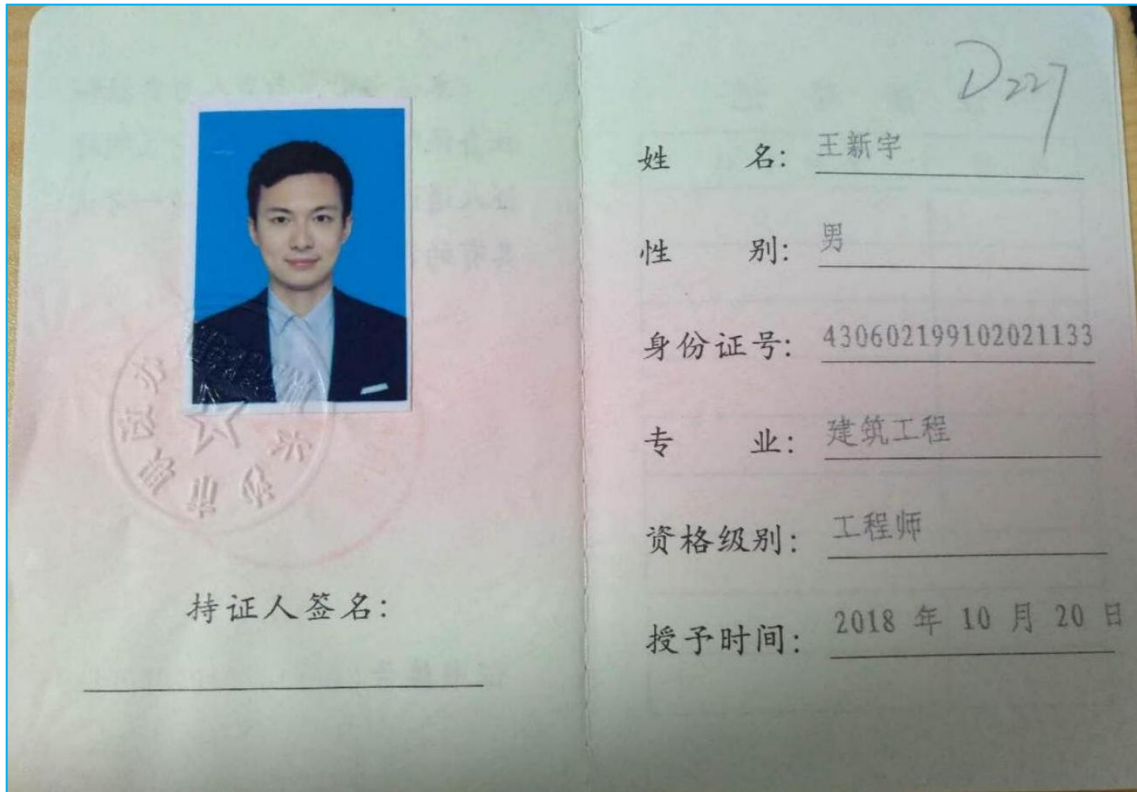 持证人签名:
D227
姓 名: 王新宇
性 别: 男
身份证号: 430602199102021133
专 业: 建筑工程
资格级别: 工程师
授予时间: 2018 年 10 月 20 日